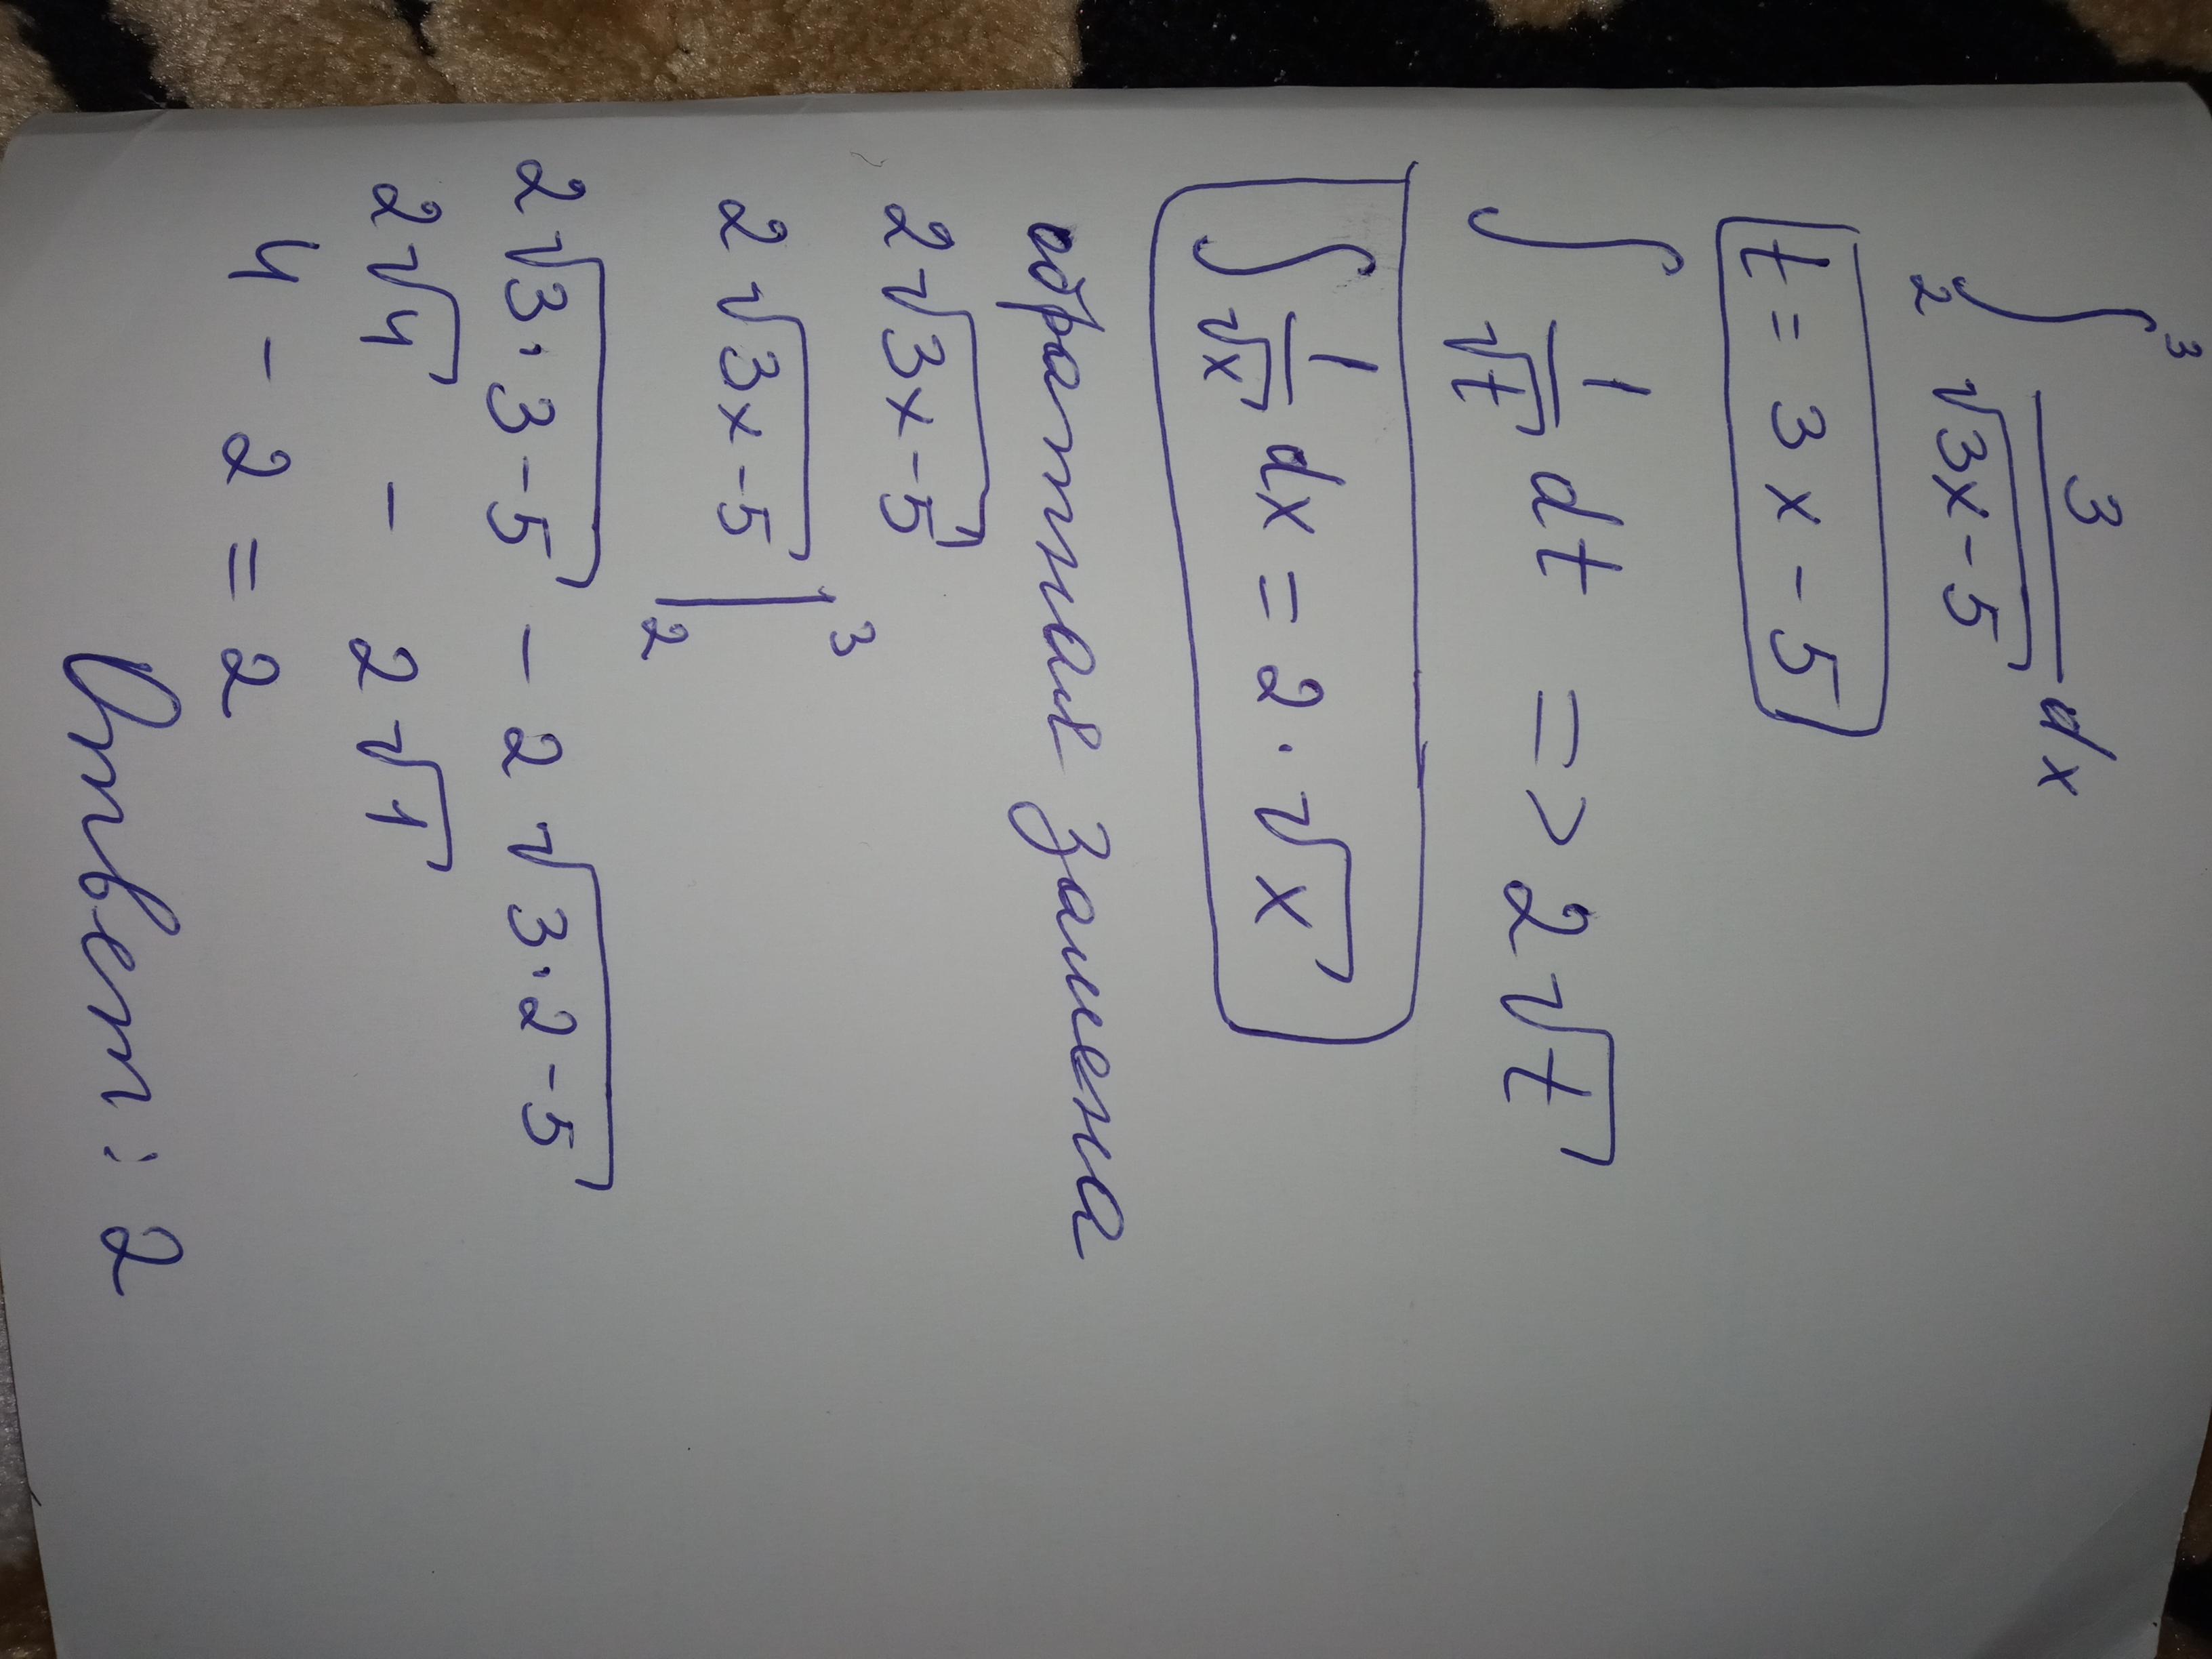 ∫₂³ 3/√(3x-5) dx
t = 3x - 5
∫ 1/√t dt => 2√t
∫ 1/√x dx = 2·√x
обратная замена
2√(3x-5)
2√(3x-5) |₂³
2√(3·3-5) - 2√(3·2-5)
2√4 - 2√1
4 - 2 = 2
Ответ: 2